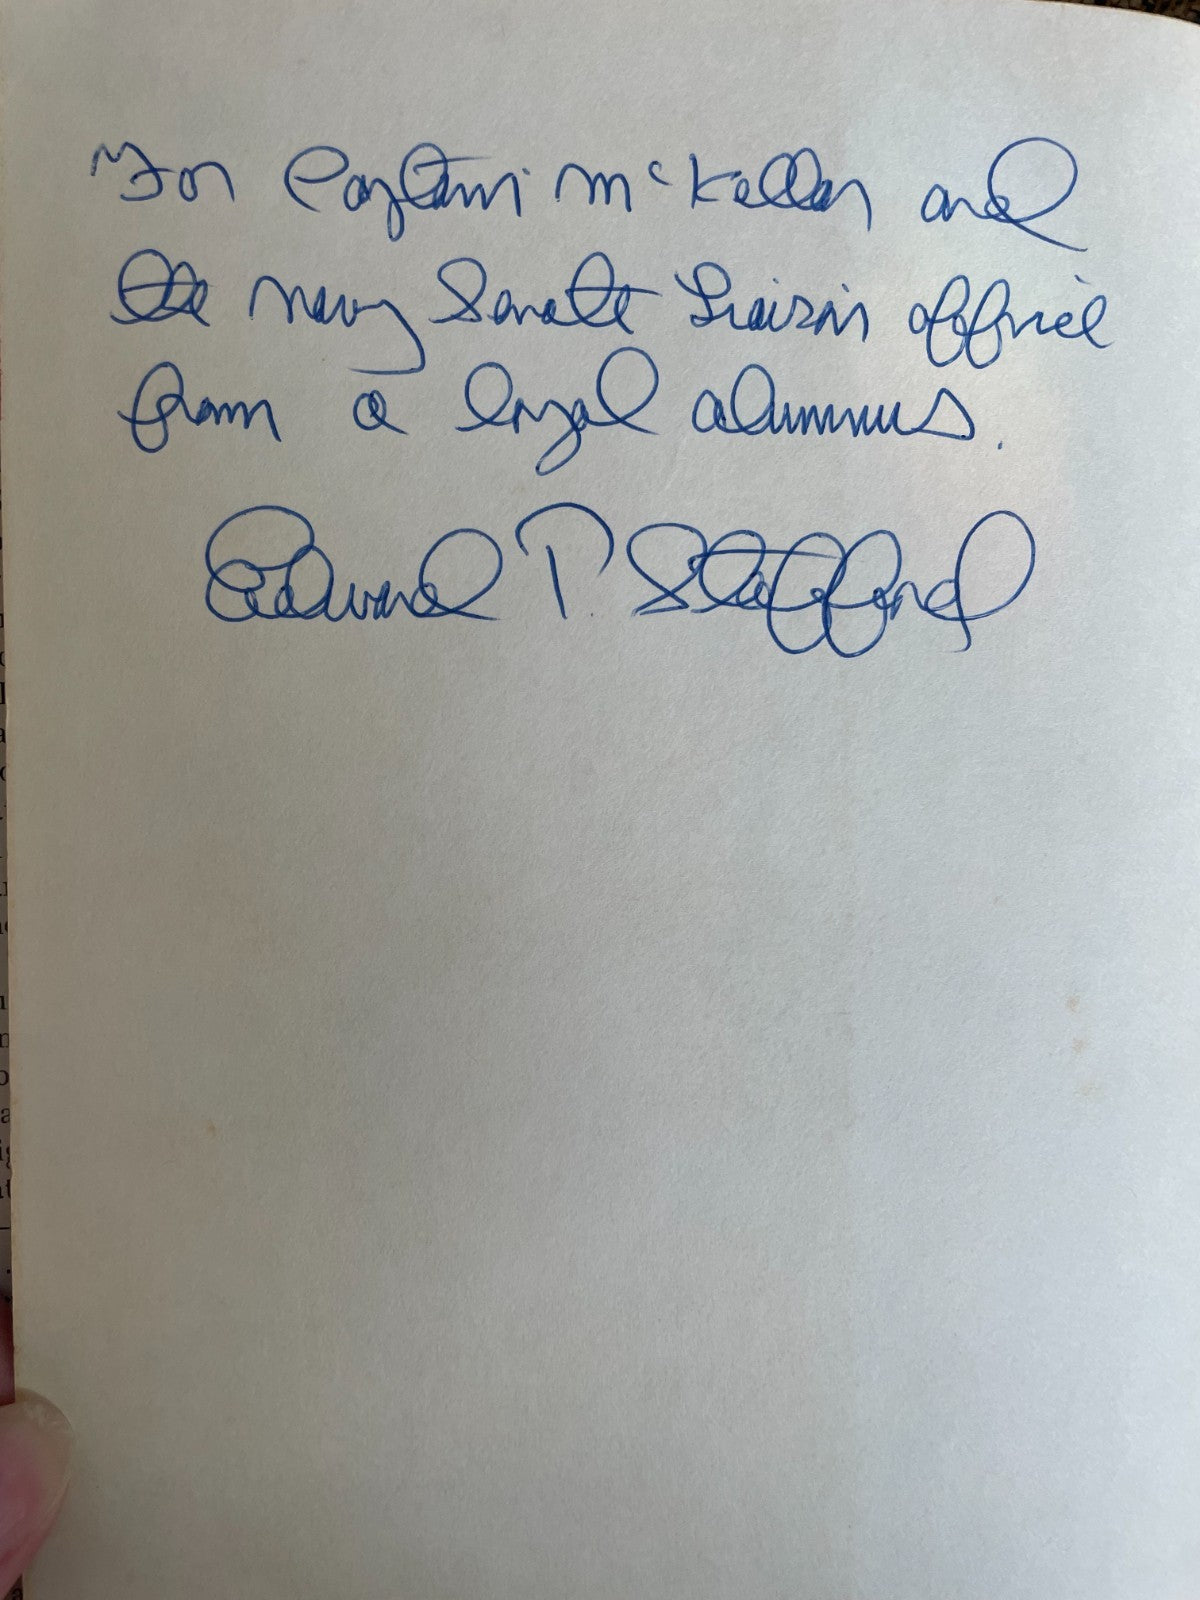 For Captain McKellar and
the Navy Senate Liaison office
from a loyal alumnus.
Edward P. Stafford